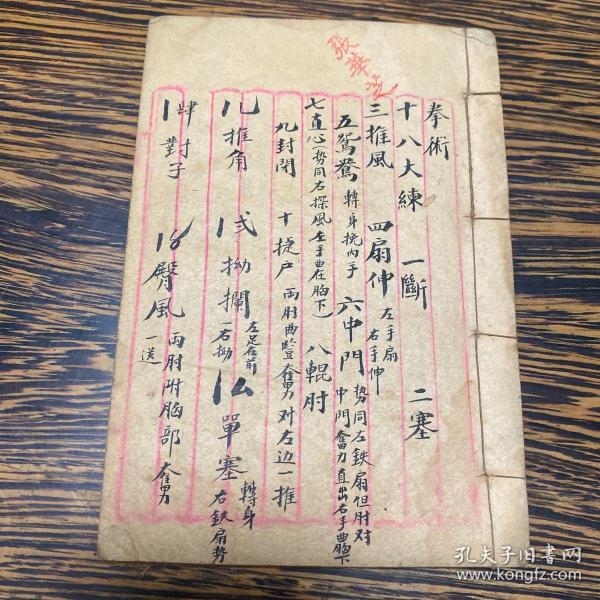 張華芝
拳術
十八大練 一斷 二塞
三推風 四扇伸 左手扇 右手伸
五鴛鴦 轉身挽内手 六中門 势同左鉄扇但肘对中門奮力直出右手曲胸下
七直心(势同右探風左手曲在胸下) 八輥肘
九封閉 十捷户 兩肘曲豎奮男对左边一推
推角 弍拗攔 左足在前 右拗 單塞 轉身右鉄扇势
肆對子 臀風 兩肘附胸部奮男一送
孔夫子旧书网
www.kongfz.com